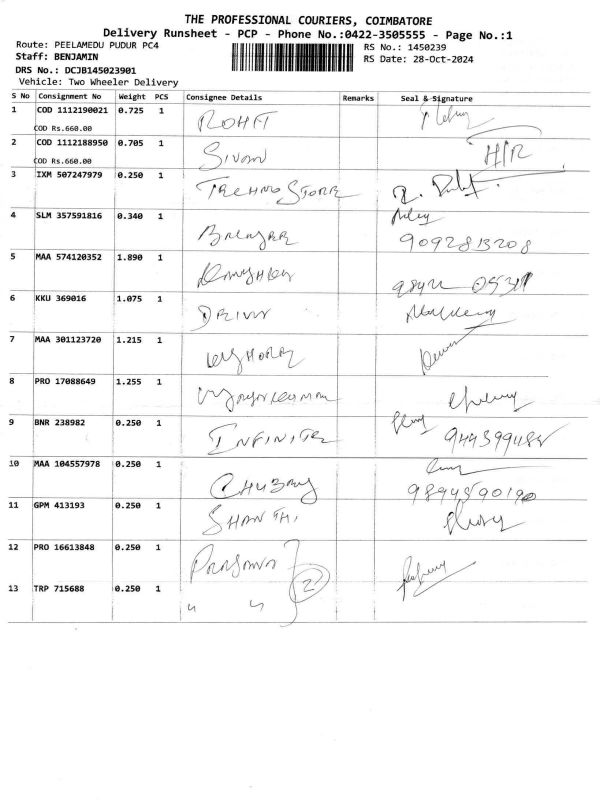 THE PROFESSIONAL COURIERS, COIMBATORE
Delivery Runsheet - PCP - Phone No.:0422-3505555 - Page No.:1
Route: PEELAMEDU PUDUR PC4
RS No.: 1450239
Staff: BENJAMIN
RS Date: 28-Oct-2024
DRS No.: DCJB145023901
Vehicle: Two Wheeler Delivery
S No Consignment No Weight PCS Consignee Details Remarks Seal & Signature
1 COD 1112190021 0.725 1 ROHIT
COD Rs.660.00
2 COD 1112188950 0.705 1
COD Rs.660.00
3 IXM 507247979 0.250 1 TECHNO STORE
4 SLM 357591816 0.340 1
9092813208
5 MAA 574120352 1.890 1
6 KKU 369016 1.075 1
7 MAA 301123720 1.215 1
8 PRO 17088649 1.255 1
9 BNR 238982 0.250 1 INFINITE
10 MAA 104557978 0.250 1
11 GPM 413193 0.250 1 SHANTHI
12 PRO 16613848 0.250 1
13 TRP 715688 0.250 1 " " 2